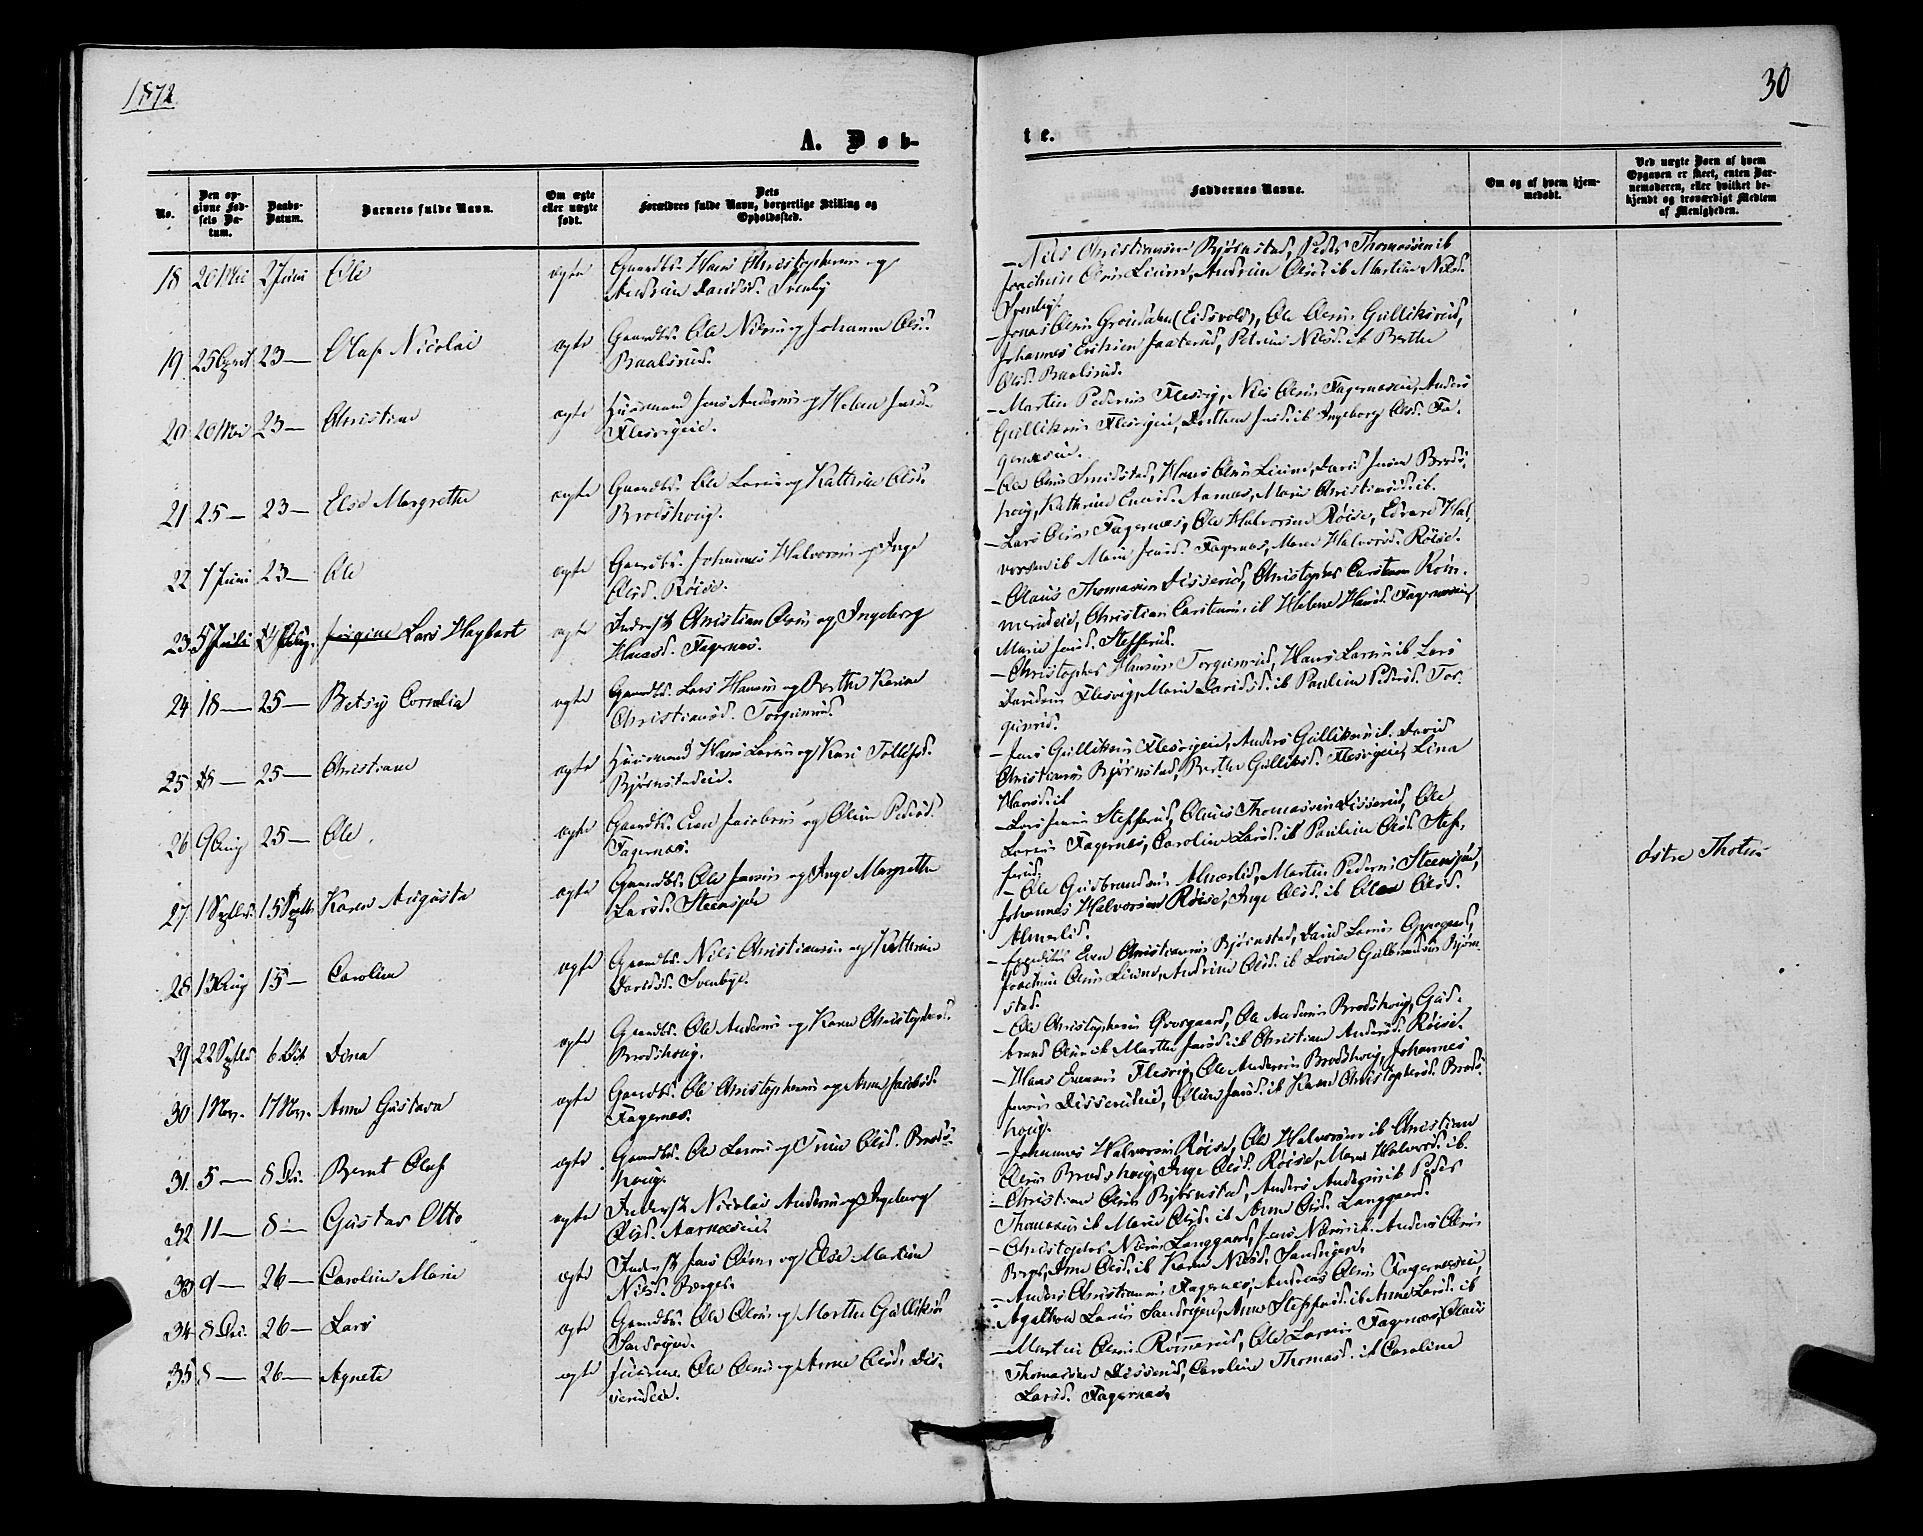 1872
30
A. Døb-
te.
No.
Den op-
givne Fød-
sels Da-
tum.
Daabs-
Datum.
Barnets fulde Navn.
Om ægte
eller uægte
født.
Dets
Forældres fulde Navn, borgerlige Stilling og
Opholdssted.
Faddernes Navne.
Om og af hvem hjem-
medøbt.
Ved uægte Børn af hvem
Opgaven er skeet, enten Bar-
nemoderen, eller hvilket be-
kjendt og troværdigt Medlem
af Menigheden.
18 20 Mai 2 Juni Ole ægte Gaardbr. Hans Christophersen og
Andrine Davidsd. Svenby
Nils Christiansen Bjørnstad, Peder Thomassen ib
Joachim Olsen Liune, Andrine Olsd. ib Martine Nilsd.
Svenby.
19 25 April 23 — Olaf Nicolai ægte Gaardbr. Ole Nilsen og Johanne Olsd.
Baalsrud.
Jonas Olsen (Eidsvold), Ole Olsen Gulliksrud,
Johannes Eriksen Petrine Nilsd. ib Berthe
Olsd. Baalsrud.
20 20 Mai 23 — Christine ægte Huusmand Jens Andersen og Helene Jensd.
Flesvigeie.
Martin Pedersen Flesvig, Nils Olsen Fagernæseie, Anders
Gulliksen Flesvigeie, Dorthea Jensd. ib Ingeborg Olsd. Fa-
gernæseie.
21 25 — 23 — Else Margrethe ægte Gaardbr. Ole Larsen og Kathrine Olsd.
Brodshoug.
Ole Olsen Smidstad, Hans Olsen Liune, David Jensen Brods-
houg, Kathrine Aarnæs, Marie Christiansd. ib.
22 7 Juni 23 — Ole ægte Gaardbr. Johannes Halvorsen og Inge
Olsd. Røise.
Lars Olsen Fagernæs, Ole Halvorsen Røise, Edvard Hal-
vorsen ib Marie Jensd. Fagernæs, Maren Halvorsd. Røise.
23 5 Juli Lars Hagbart ægte Inderst Christian Olsen og Ingeborg
Hansd. Fagernæs.
Olaus Thomassen Disserud, Christopher Carstensen Røm-
merudeie, Christian Carstensen ib Helene Hansd. Fagernæseie
Marie Jensd. Stefferud.
24 18 — 25 — Betsy Cornelia ægte Gaardbr. Lars Hansen og Berthe Karine
Christiansd. Torgunrud.
Christopher Hansen Torgunrud, Hans Larsen ib Lars
Davidsen Flesvig, Marie Davidsd. ib Pauline Pedersd. Tor-
gunrud.
25 18 — 25 — Christiane ægte Huusmand Hans Larsen og Kari Tollefsd.
Bjørnstadeie.
Jens Gulliksen Flesvigeie, Anders Gulliksen ib. David
Christiansen Bjørnstad, Berthe Gulliksd. Flesvigeie, Lina
Hansd. ib
26 9 Aug 25 — Ole. ægte Gaardbr. Even Jacobsen og Oline Pedersd.
Fagernæs.
Lars Jensen Stefferud, Olaus Thomassen Disserud, Ole
Larsen Fagernæs, Caroline Larsd. ib Pauline Olsd. Stef-
ferud.
østre Thoten
27 1 Septbr. 15 Septbr. Karen Augusta ægte Gaardbr. Ole Jensen og Inge Margrethe
Larsd. Steensjø
Ole Gudbrandsen Almerlid, Martin Pedersen Steensjø,
Johannes Halvorsen Røise, Inge Olsd. ib Olea Olsd.
Almerlid.
28 13 Aug 15 — Caroline ægte Gaardbr. Nils Christiansen og Kathrine
Davidsd. Svenby.
Even Christiansen Bjørnstad, David Larsen
Joachim Olsen Liune, Andrine Olsd. ib Lovise Gulbrandsen Bjørn-
stad.
29 22 Septbr 6 Oct. Dina ægte Gaardbr. Ole Andersen og Karen Christophersd.
Brodshoug.
Ole Christophersen Ole Andersen Brodshoug, Gud-
brand Olsen ib Marthe Jensd. ib Christine Andersd. Røise.
30 1 Nov. 17 Nov. Anne Gustava ægte Gaardbr. Ole Christophersen og Anne Jacobsd.
Fagernæs.
Hans Evensen Flesvig, Ole Andersen Brodshoug, Johannes
Jensen Disserudeie, Oline Jensd. ib Karen Christophersd. Brods-
houg.
31 5 — 8 De. Bernt Olaf ægte Gaardbr. Ole Larsen og Trine Olsd. Brods-
houg.
Johannes Halvorsen Røise, Ole Halvorsen ib Christian
Olsen Brodshoug, Inge Olsd. Røise, Maren Halvorsd. ib.
32 11 — 8 — Gustav Otto ægte Inderst Nicolai Andersen og Ingeborg
Olsd. Aarnæseie.
Christian Olsen Bjørnstad, Anders Andersen ib Peder
Thomassen ib Marie Olsd. ib Anne Olsd. Langgaard.
33 9 — 26 — Caroline Marie ægte Inderst Jens Olsen og Else Martine
Nilsd. Berger.
Christopher Nilsen Langgaard, Jens Nilsen ib. Anders Olsen
Berger, Anne Olsd. ib Karen Nilsd. Sandvigen.
34 8 Dec. 26 — Lars ægte Gaardbr. Ole Olsen og Marthe Gulliksd
Sandvigen.
Anders Christiansen Fagernæs, Andreas Olsen Fagernæseie,
Agathon Larsen Sandvigen, Anne Steffensd. ib Anne Larsd. ib
35 8 — 26 — Agnete ægte Ole Olsen og Anne Olsd. Dis-
serudeie.
Martin Olsen Rømmerud, Ole Larsen Fagernæs, Olaus
Thomassen Disserud, Caroline Thomasd. ib Caroline
Larsd. Fagernæs.